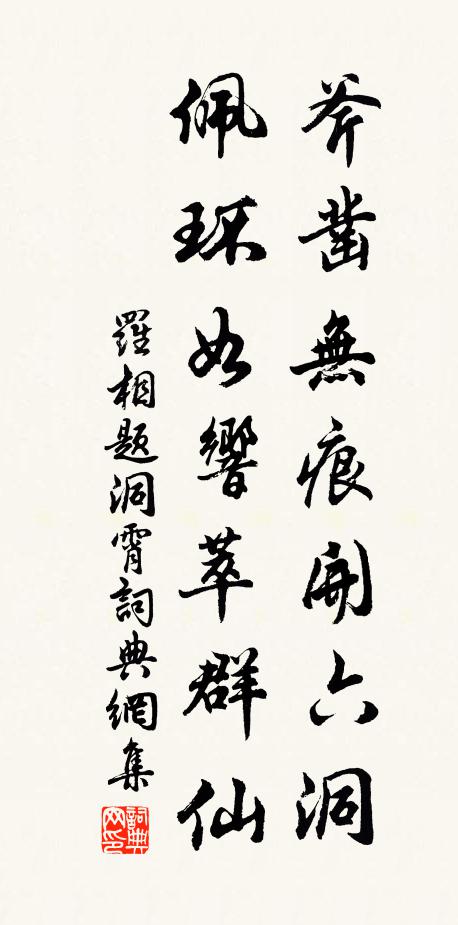 斧凿無痕開六洞
佩環如響萃群仙
羅相題洞霄詞典網集
詞典网印